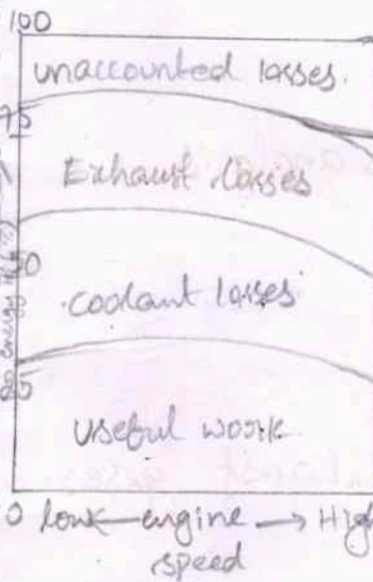 100
unaccounted losses.
75
Exhaust losses
50
coolant losses
energy
25
useful work
0 low ← engine → High
speed